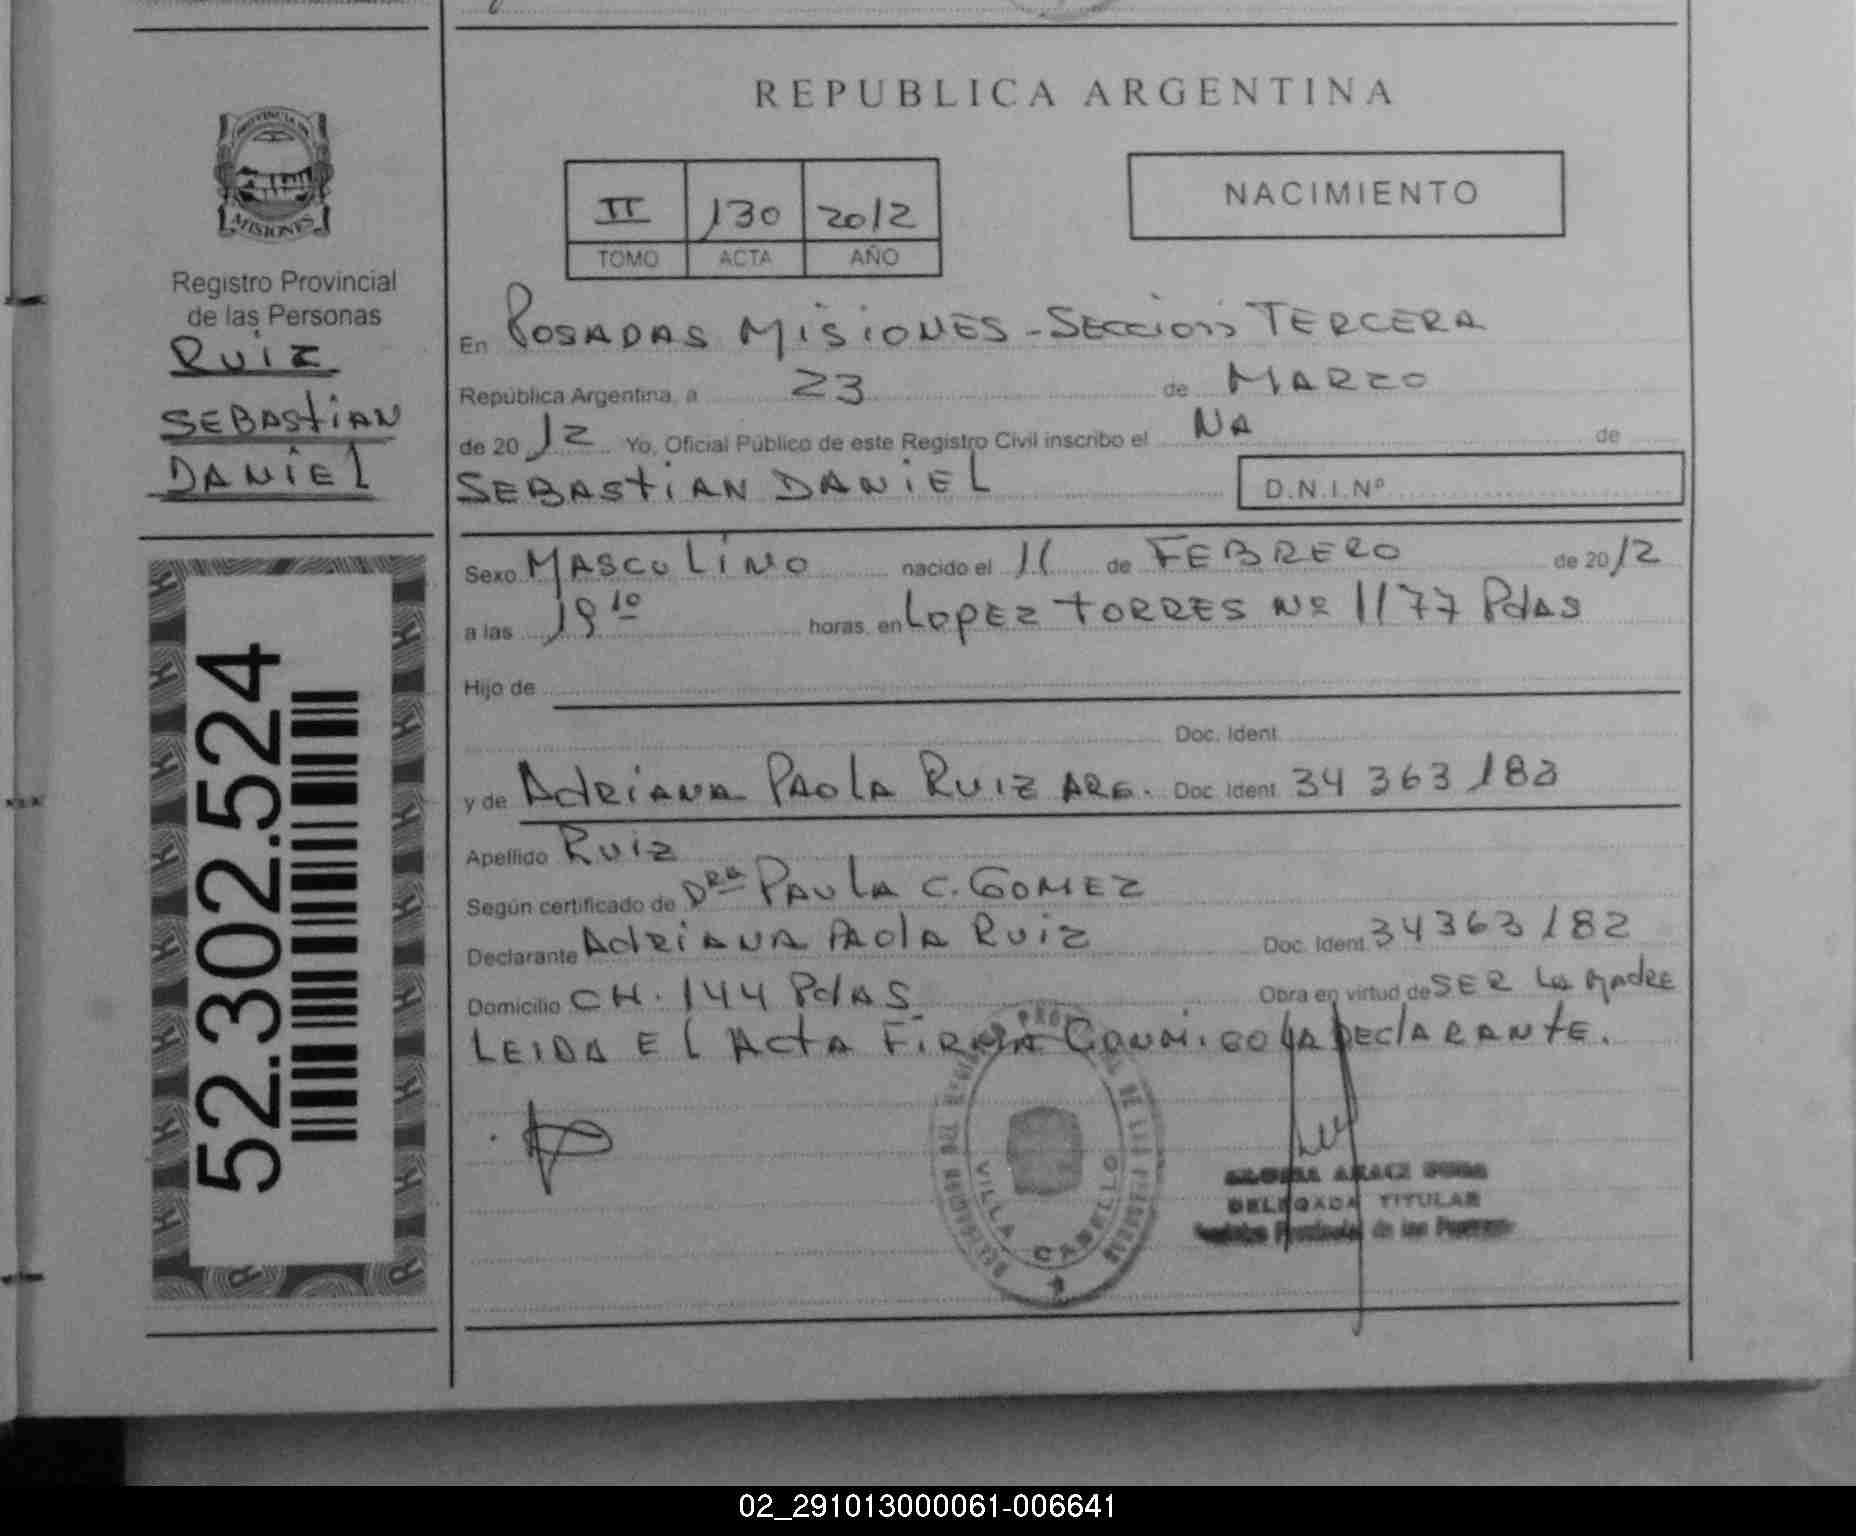 PROVINCIA DE
MISIONES
Registro Provincial
de las Personas
RUIZ
SEBASTIAN
DANIEL
52.302.524
REPUBLICA ARGENTINA
II 130 2012
TOMO ACTA AÑO
NACIMIENTO
En POSADAS MISIONES - SECCION TERCERA
República Argentina, a 23 de MARZO
de 2012 Yo, Oficial Público de este Registro Civil inscribo el NA de
SEBASTIAN DANIEL D.N.I.Nº
Sexo MASCULINO nacido el 11 de FEBRERO de 2012
a las 19 10 horas, en LOPEZ TORRES Nº 1177 PdAS
Hijo de
Doc. Ident.
y de AdRIANA PAOLA RUIZ ARG. Doc. Ident. 34 363 182
Apellido RUIZ
Según certificado de DRA PAULA C. GOMEZ
Declarante AdRIANA PAOLA RUIZ Doc. Ident. 34363182
Domicilio CH. 144 PdAS Obra en virtud de SER LA MADRE
LEIDA EL ACTA FIRMA CONMIGO LA DECLARANTE.
VILLA CABELLO
DELEGADA TITULAR
Registro Provincial de las Personas
02_291013000061-006641